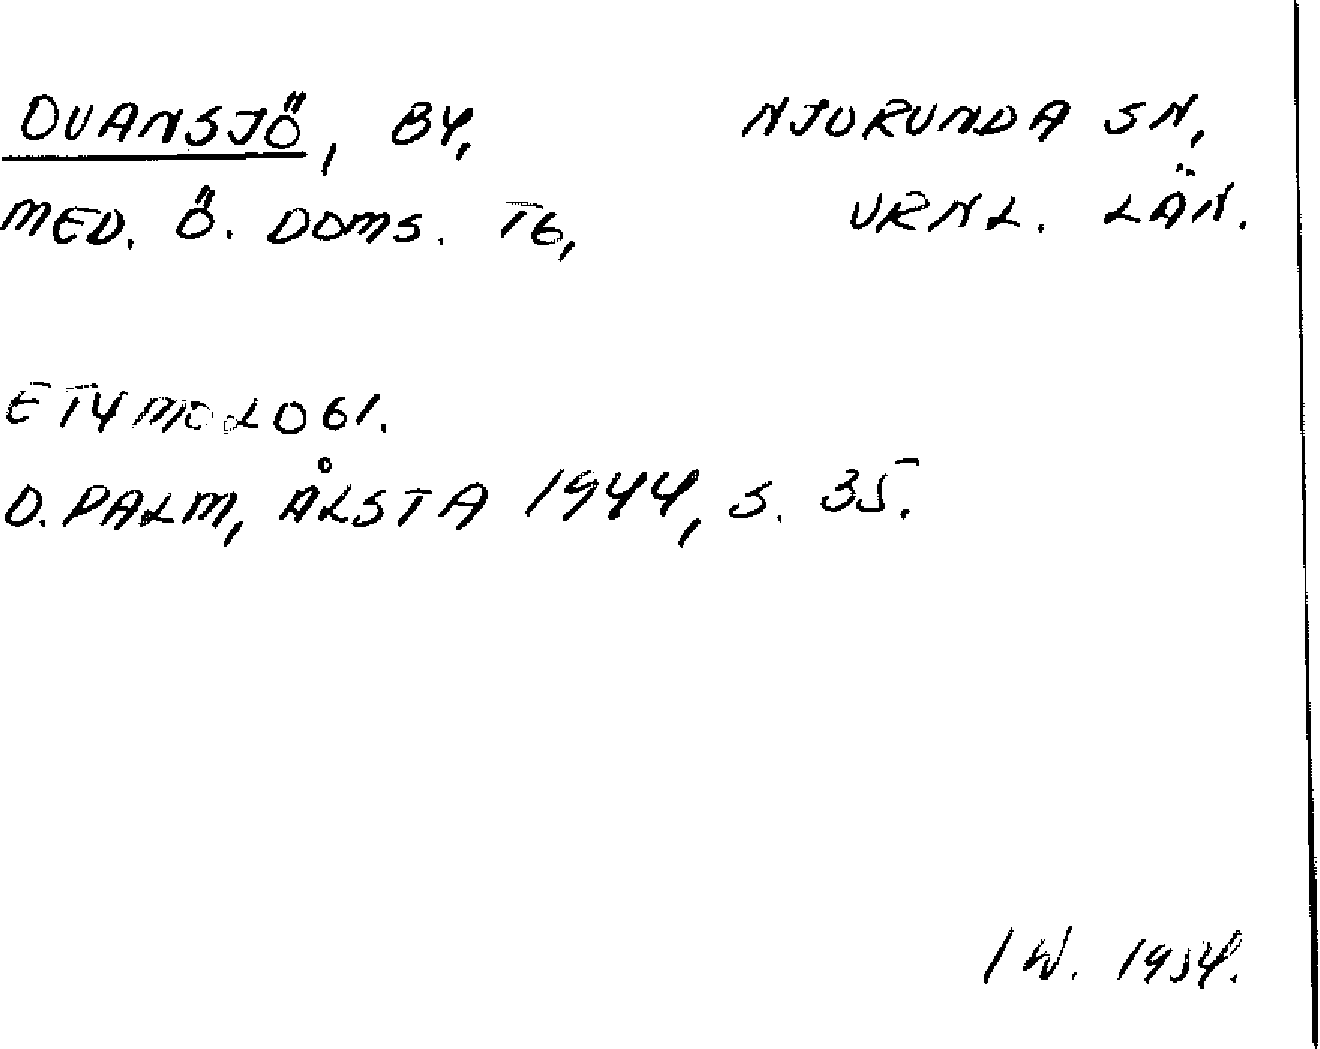 OVANSJÖ, BY, NJURUNDA SN,
MED. Ö. DOMS. TG, VRNL. LÄN.
ETYMOLOGI.
D. PALM, ÅLSTA 1944, S. 35.
IW. 1954.